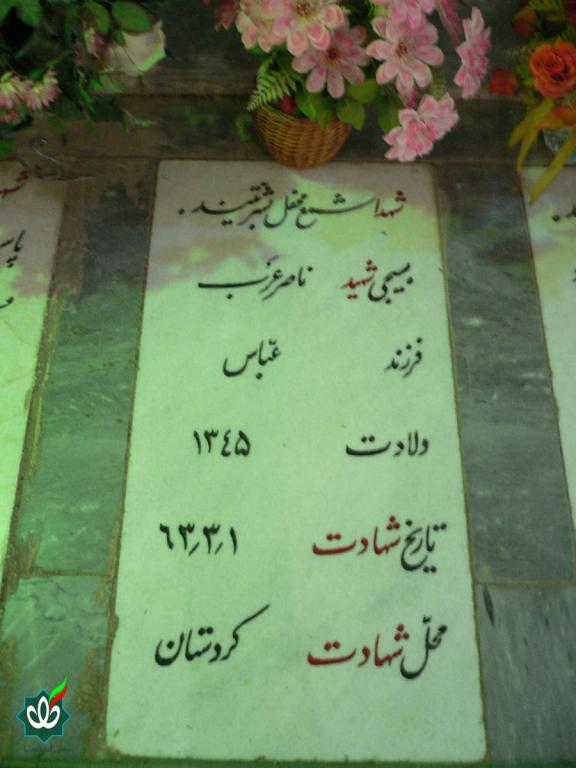 شهدا شمع محفل بشریتند.
بسیجی شهید ناصر عرب
فرزند عباس
ولادت ١٣٤٥
تاریخ شهادت ٦٣٫٣٫١
محلّ شهادت کردستان